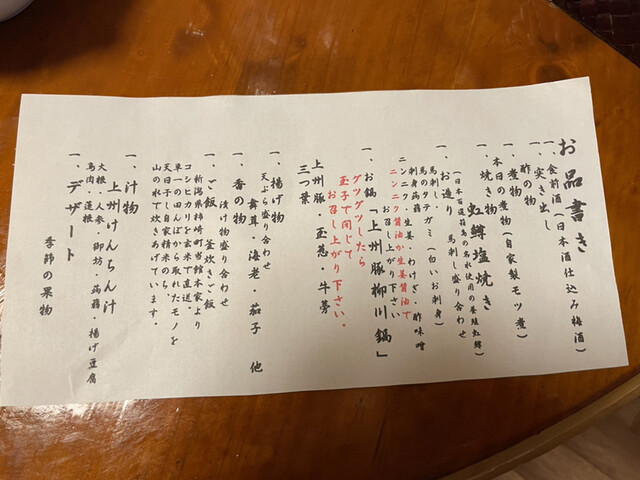 お品書き
一、食前酒(日本酒仕込み梅酒)
一、突き出し
一、酢の物
一、煮物
本日の煮物(自家製モツ煮)
一、焼き物
虹鱒塩焼き
(日本百選箱島の名水使用の養殖虹鱒)
一、お造り
馬刺し盛り合わせ
馬刺し・
馬のタテガミ(白いお刺身)
刺身蒟蒻
ニンニク・生姜・わけぎ・酢味噌
ニンニク醤油か生姜醤油で
お召し上がり下さい
一、お鍋「上州豚柳川鍋」
グツグツしたら
玉子で閉じて
お召し上がり下さい。
上州豚・玉葱・牛蒡
三つ葉
一、揚げ物
天ぷら盛り合わせ
舞茸・海老・茄子 他
一、香の物
漬け物盛り合わせ
一、ご飯 釜炊きご飯
新潟県柿崎町当館本家より
コシヒカリを玄米で直送。
単一の田んぼから取れたモノを
天日干し自家精米のち、
山の水で炊きあげています。
一、汁物
上州けんちん汁
大根・人参・御坊・蒟蒻・揚げ豆腐
鳥肉・蓮根
一、デザート
季節の果物